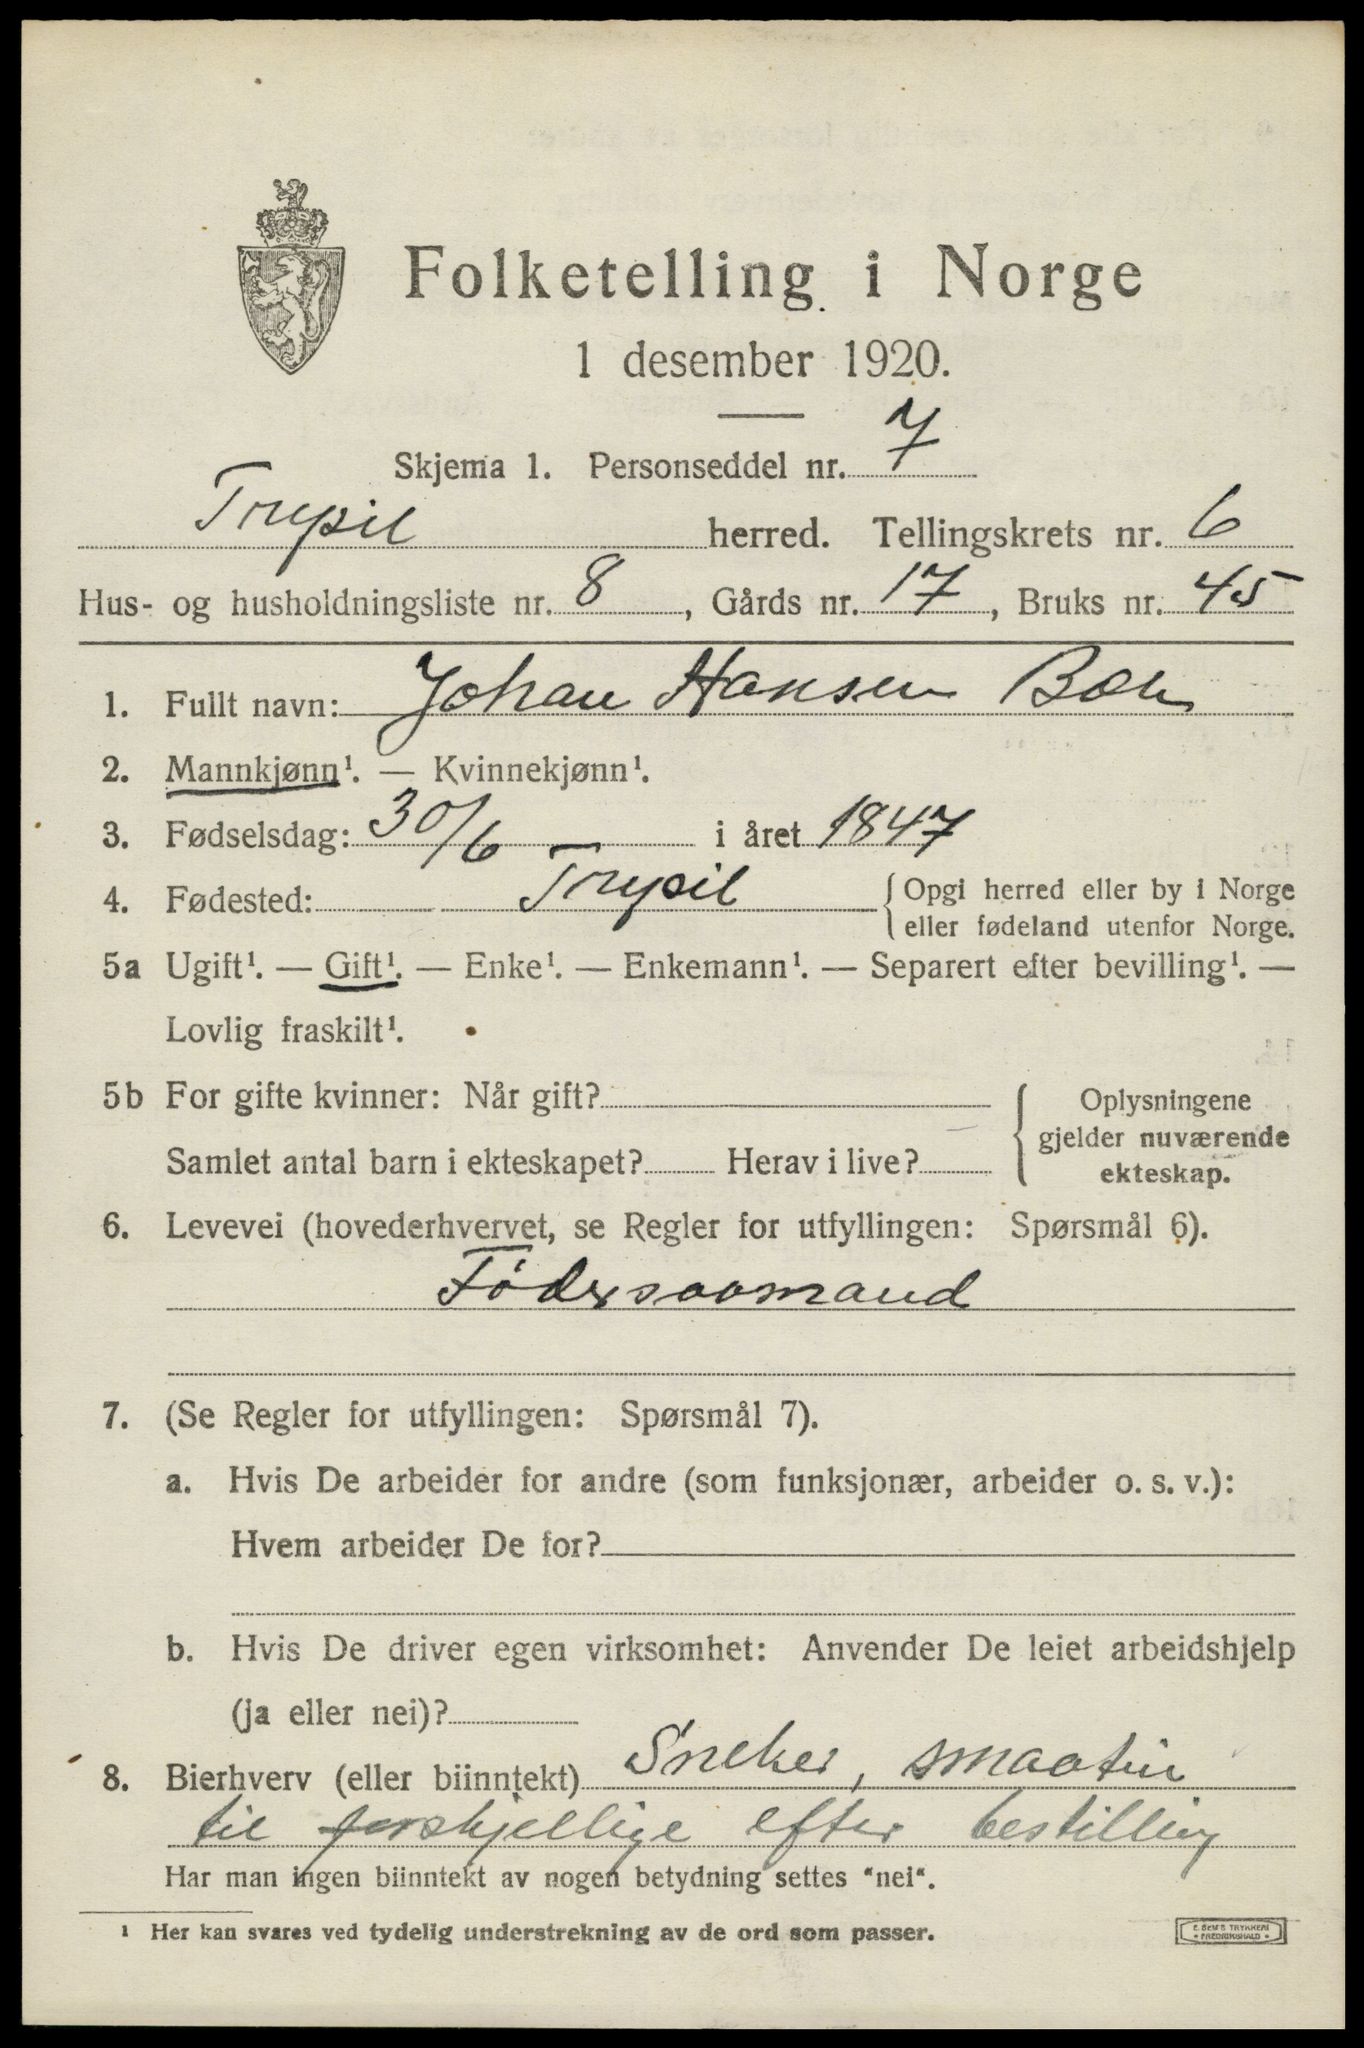 Folketelling i Norge
1 desember 1920.
Skjema 1. Personseddel nr. 7
Trysil herred. Tellingskrets nr. 6
Hus- og husholdningsliste nr. 8, Gårds nr. 17, Bruks nr. 45
1. Fullt navn: Johan Hansen
2. Mannkjønn¹. — Kvinnekjønn¹.
3. Fødselsdag: 30/6 i året 1847
4. Fødested: Trysil {Opgi herred eller by i Norge
eller fødeland utenfor Norge.
5a Ugift¹. — Gift¹. — Enke¹. — Enkemann¹. — Separert efter bevilling¹. —
Lovlig fraskilt¹.
5b For gifte kvinner: Når gift?
Samlet antal barn i ekteskapet? Herav i live?
Oplysningene
gjelder nuværende
ekteskap.
6. Levevei (hovederhvervet, se Regler for utfyllingen: Spørsmål 6).
7. (Se Regler for utfyllingen: Spørsmål 7).
a. Hvis De arbeider for andre (som funksjonær, arbeider o. s. v.):
Hvem arbeider De for?
b. Hvis De driver egen virksomhet: Anvender De leiet arbeidshjelp
(ja eller nei)?
8. Bierhverv (eller biinntekt) Sneker, smaatin
til forskjellige efter bestilling
Har man ingen biinntekt av nogen betydning settes "nei".
¹ Her kan svares ved tydelig understrekning av de ord som passer.
E. SEM'S TRYKKERI
FREDRIKSHALD